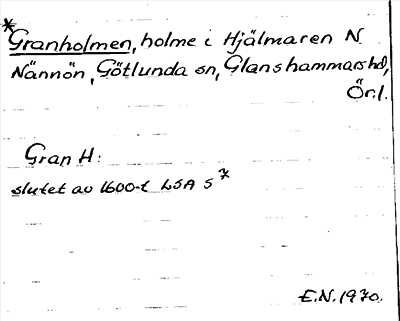 *Granholmen, holme i Hjälmaren N
Nännön, Götlunda sn, Glanshammars hd,
Ör. l.
Gran H:
slutet av 1600-t LSA S 7
E.N. 1970.